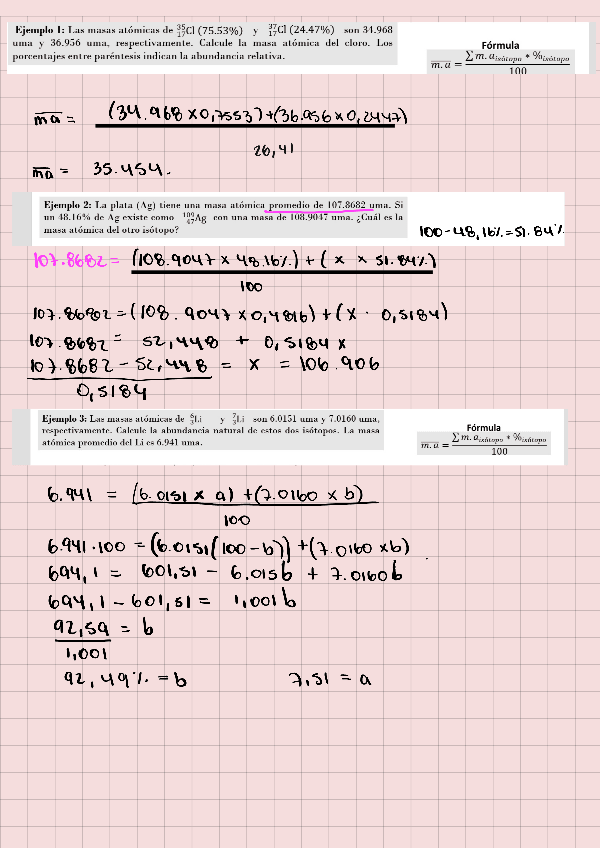 Ejemplo 1: Las masas atómicas de ³⁵₁₇Cl (75.53%) y ³⁷₁₇Cl (24.47%) son 34.968
uma y 36.956 uma, respectivamente. Calcule la masa atómica del cloro. Los
porcentajes entre paréntesis indican la abundancia relativa.
Fórmula
m.a = ∑ m.a isótopo * % isótopo / 100
ma = (34.968 x 0,7553) + (36.956 x 0,2447)
26,41
ma = 35.454.
Ejemplo 2: La plata (Ag) tiene una masa atómica promedio de 107.8682 uma. Si
un 48.16% de Ag existe como ¹⁰⁹₄₇Ag con una masa de 108.9047 uma. ¿Cuál es la
masa atómica del otro isótopo?
100-48,16%=51.84%
107.8682 = (108.9047 x 48.16%) + ( x x 51.84%)
100
107.8682 = (108.9047 x 0,4816) + (x · 0,5184)
107.8682 = 52,448 + 0,5184 x
107.8682 - 52,448 = x = 106.906
0,5184
Ejemplo 3: Las masas atómicas de ⁶₃Li y ⁷₃Li son 6.0151 uma y 7.0160 uma,
respectivamente. Calcule la abundancia natural de estos dos isótopos. La masa
atómica promedio del Li es 6.941 uma.
Fórmula
m.a = ∑ m.a isótopo * % isótopo / 100
6.941 = (6.0151 x a) + (7.0160 x b)
100
6.941 · 100 = (6.0151(100 - b)) + (7.0160 x b)
694,1 = 601,51 - 6.015b + 7.0160b
694,1 - 601,51 = 1,001 b
92,59 = b
1,001
92,49% = b 7,51 = a